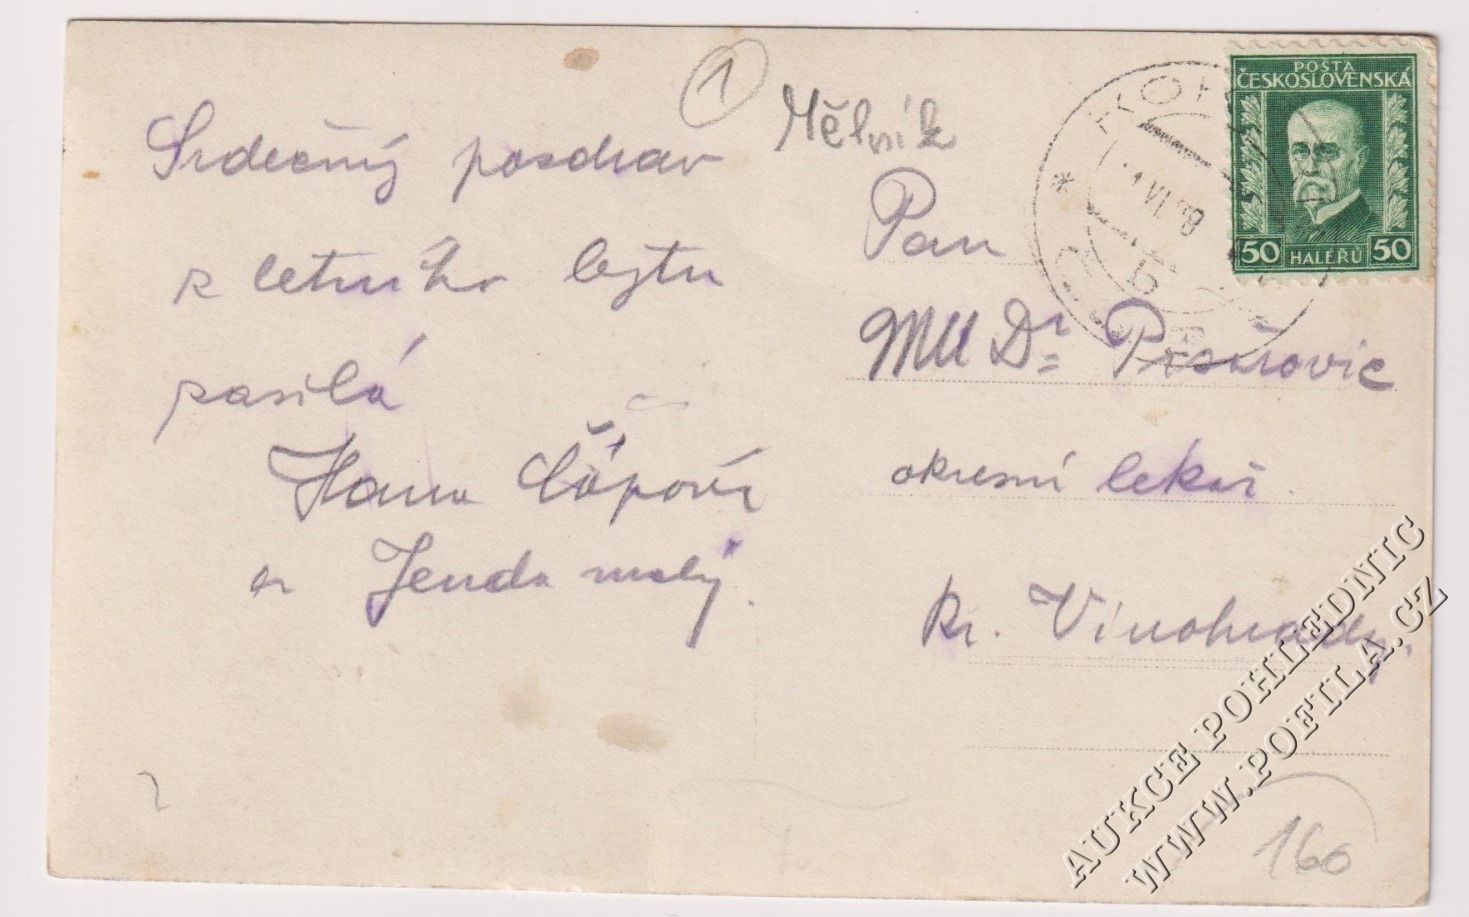 1
Mělník
Srdečný pozdrav
z letního bytu
zasílá
Hana Čápová
a Jenda malý.
POŠTA
ČESKOSLOVENSKÁ
50 HALÉŘŮ 50
VI.
Pan
MUDr.
okresní lékař.
Kr. Vinohrady.
160
AUKCE POHLEDNIC
WWW.POFILA.CZ